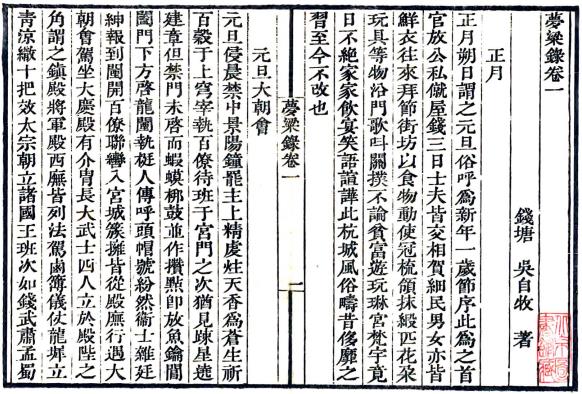 夢粱錄卷一
錢塘 吳自牧 著
正月
正月朔日謂之元旦俗呼爲新年一歲節序此爲之首
官放公私僦屋錢三日士夫皆交相賀細民男女亦皆
鮮衣往來拜節街坊以食物動使冠梳領抹緞匹花朶
玩具等物沿門歌叫關撲不論貧富遊玩琳宮梵宇竟
日不絕家家飲宴笑語諠譁此杭城風俗疇昔侈靡之
習至今不改也
夢粱錄卷一 一
元旦大朝會
元旦侵晨禁中景陽鐘罷主上精虔炷天香爲蒼生祈
百穀于上穹宰執百僚待班于宮門之次猶見疎星遶
建章但禁門未啓而蝦蟆梆鼓並作攢點卽放魚鑰閶
闔門下方啓龍闈執梃人傳呼頭帽號紛然衞士雜廷
紳報到闈開百僚聯轡入宮城簇擁皆從殿廡行遇大
朝會駕坐大慶殿有介胄長大武士四人立於殿陛之
角謂之鎭殿將軍殿西廡皆列法駕鹵簿儀仗龍墀立
靑凉繖十把效太宗朝立諸國王班次如錢武肅孟蜀